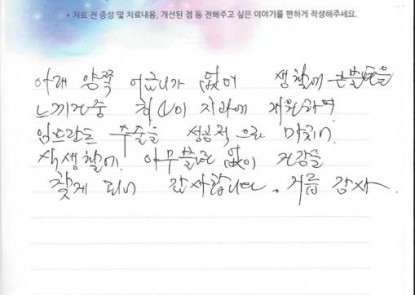 * 치료 전 증상 및 치료내용, 개선된 점 등 전해주고 싶은 이야기를 편하게 작성해주세요.
아래 양쪽 어금니가 없어 생활에 큰불편을
느끼던중 이 치과에 내원하여
임프란트 수술을 성공적으로 마치어
식생활에 아무불편 없이 건강을
찾게 되어 감사합니다. 거듭 감사